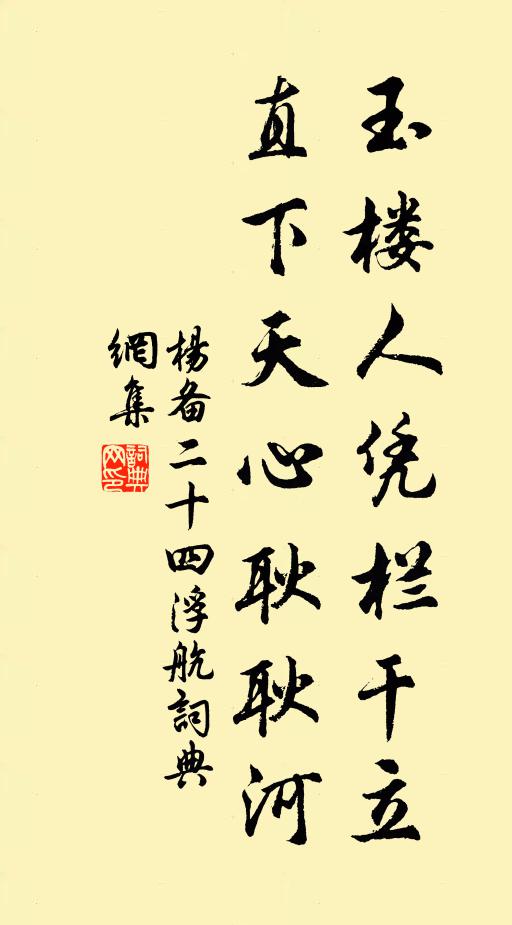 玉楼人凭栏干立
直下天心耿耿河
楊备二十四浮航詞典
網集
詞典
网印